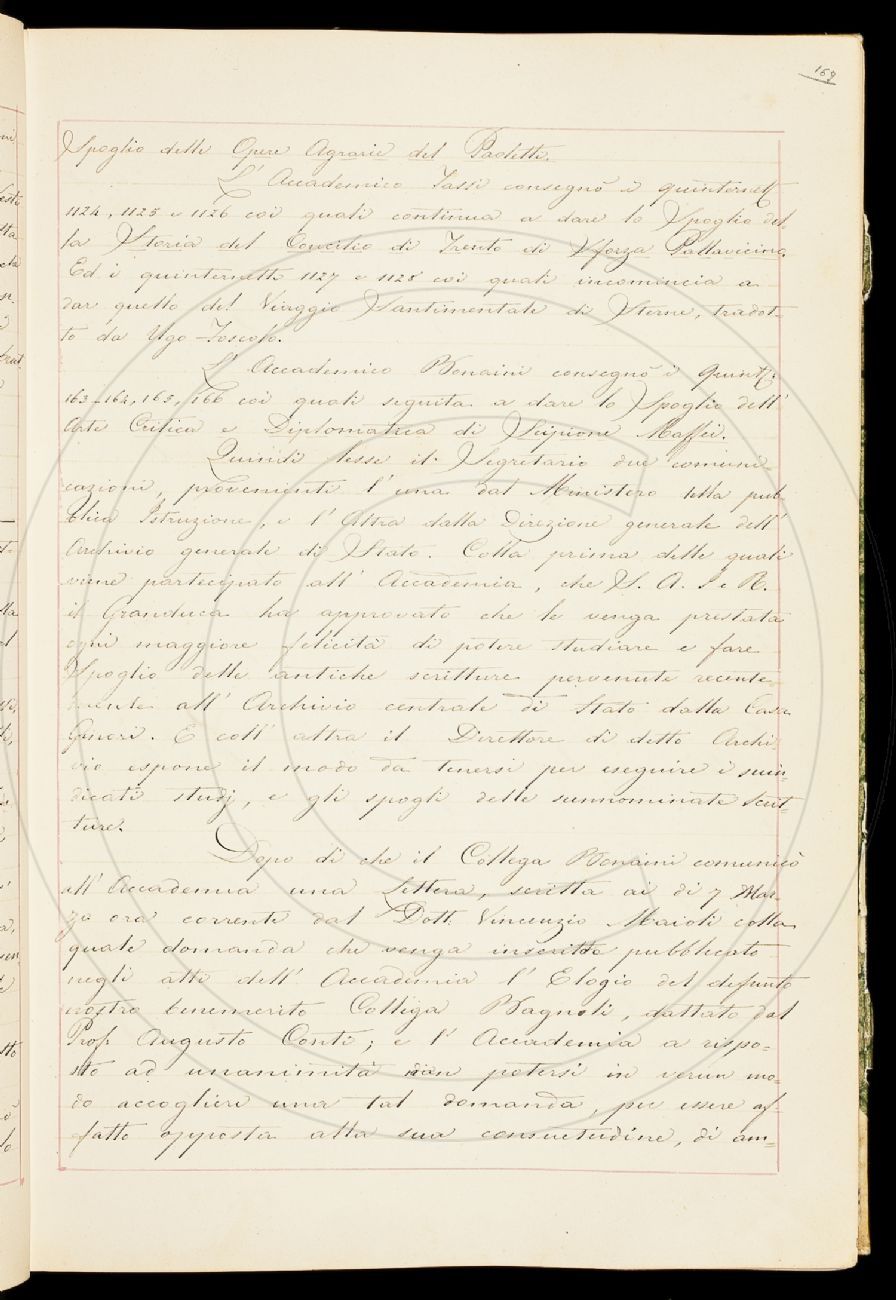 169
Spoglio delle Opere Agrarie del Paoletti.
L' Accademico Tassi consegnò i quinternetti
1124, 1125 e 1126 coi quali continua a dare lo Spoglio del-
la Storia del Concilio di Trento di Sforza Pallavicino.
Ed i quinternetti 1127 e 1128 coi quali incomincia a
dar quello del Viaggio Santimentale di Sterne, tradot-
to da Ugo Foscolo.
L' Accademico Bonaini consegnò i quint.i
163-164, 165, 166 coi quali seguita a dare lo Spoglio dell'
Arte Critica e Diplomatica di Scipione Maffei.
Quindi lesse il Segretario due comuni-
cazioni, provenienti l' una dal Ministero della pub-
blica Istruzione, e l' Altra dalla Direzione generale dell'
Archivio generale di Stato. Colla prima delle quali
viene partecipato all' Accademia, che S. A. I e R.
il Granduca ha approvato che le venga prestata
ogni maggiore felicità di potere studiare e fare
Spoglio delle antiche scritture pervenute recente-
mente all' Archivio centrale di Stato dalla Casa
Ginori. E coll' altra il Direttore di detto Archi-
vio espone il modo da tenersi per eseguire i suin-
dicati studj, e gli spogli delle sunnominate scrit-
ture.
Dopo di che il Collega Bonaini comunicò
all' Accademia una Lettera, scritta ai dì 7 Mar-
zo ora corrente dal Dott. Vincenzio Maioli colla
quale domanda che venga inscritto pubblicato
negli atti dell' Accademia l' Elogio del defunto
nostro benemerito Collega Bagnoli, dettato dal
Prof. Augusto Conti; e l' Accademia a rispo-
sto ad unanimità non potersi in verun mo-
do accogliere una tal domanda, per essere af-
fatto opposta alla sua consuetudine, di am-